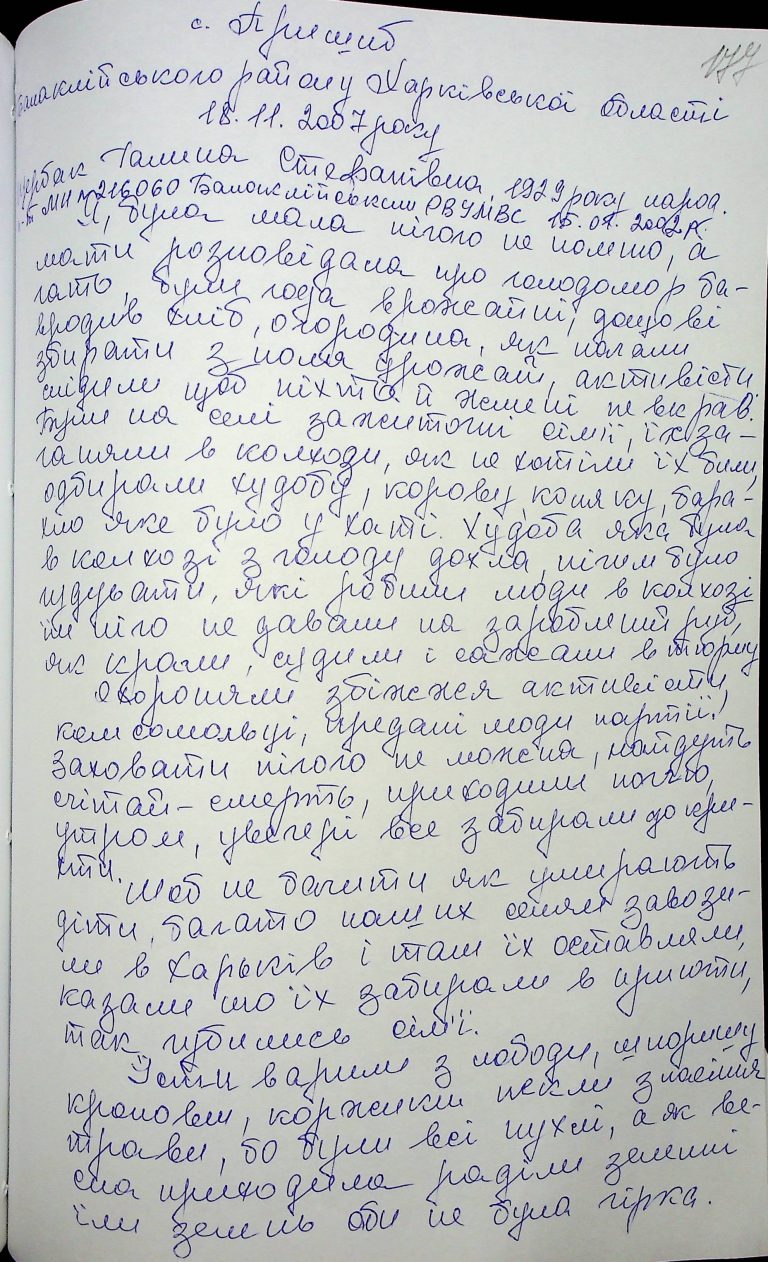 с. Пришиб
177
Балаклійського району Харківської області
18.11.2007 року
Щербак Галина Степанівна, 1929 року народ.
п-т МН № 216060 Балаклійським РВУМВС 15.01.2002 р.
Я, була мала нічого не помню, а
мати розповідала про голодомор ба-
гато, були года врожайні, дощові
вродив хліб, огородина, як почали
збирати з поля урожай, активісти
слідили щоб ніхто й жмені не вкрав.
Були на селі зажиточні сім'ї, їх за-
ганяли в колхози, як не хотіли їх били,
одбирали худобу, корову, коняку, бара-
хло яке було у хаті. Худоба яка була
в колхозі з голоду дохла, нічим було
годувати, які робили люди в колхозі
їм нічо не давали на зароблений руб,
як крали, судили і сажали в тюрму
Охороняли збіжжя активісти,
комсомольці, предані люди партії!
Заховати нічого не можна, найдуть
счітай – смерть, приходили ноччю,
утром, увечері все забирали до кри-
хти.
Щоб не бачити як умирають
діти, багато наших селян завози-
ли в Харьків і там їх оставляли,
казали шо їх забирали в приюти,
так губились сім'ї.
Їсти варили з лободи, шпоришу
кропови, коржики пекли з насіння
трави, бо були всі пухлі, а як ве-
сна приходила раділи зелені
їли зелень аби не була гірка.